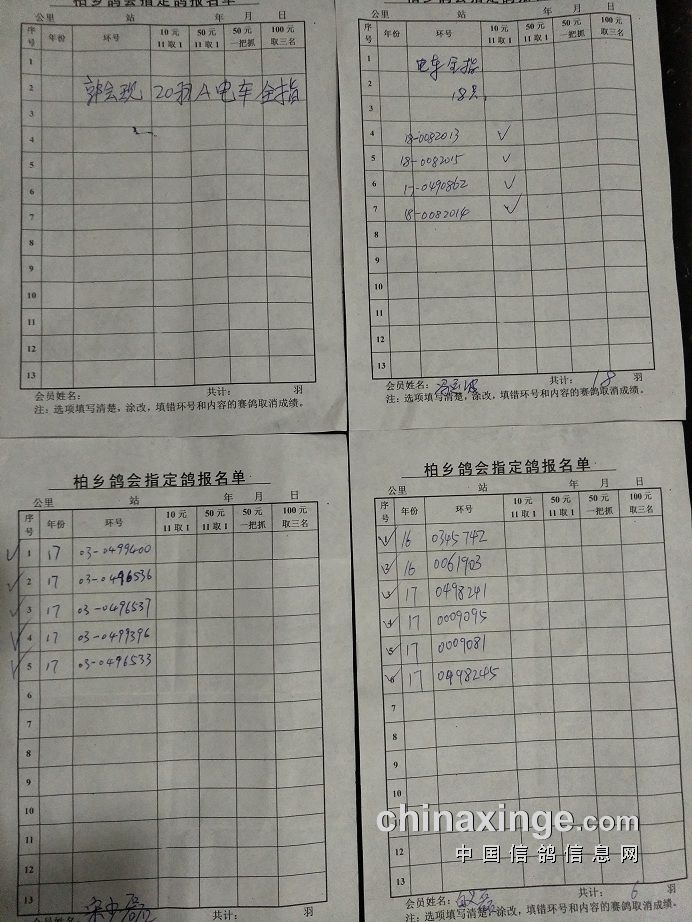 柏乡鸽会指定鸽报名单
公里 站 年 月 日
序号 年份 环号 10元 11取1 50元 11取1 50元 一把抓 100元 取三名
1
2 20羽A电车全指
3
4
5
6
7
8
9
10
11
12
13
会员姓名: 共计: 羽
注:选项填写清楚,涂改,填错环号和内容的赛鸽取消成绩。
柏乡鸽会指定鸽报名单
公里 站 年 月 日
序号 年份 环号 10元 11取1 50元 11取1 50元 一把抓 100元 取三名
1 电车全指
2 18只。
3
4 18-0082013 ✓
5 18-0082015 ✓
6 17-0490862 ✓
7 18-0082014 ✓
8
9
10
11
12
13
会员姓名: 共计: 18 羽
注:选项填写清楚,涂改,填错环号和内容的赛鸽取消成绩。
柏乡鸽会指定鸽报名单
公里 站 年 月 日
序号 年份 环号 10元 11取1 50元 11取1 50元 一把抓 100元 取三名
✓ 1 17 03-0499400
✓ 2 17 03-0496536
✓ 3 17 03-0496537
✓ 4 17 03-0499396
✓ 5 17 03-0496533
6
7
8
9
10
11
12
13
会员姓名: 共计: 羽
柏乡鸽会指定鸽报名单
公里 站 年 月 日
序号 年份 环号 10元 11取1 50元 11取1 50元 一把抓 100元 取三名
✓ 1 16 0345742
✓ 2 16 0061903
✓ 3 17 0498241
✓ 4 17 0009095
✓ 5 17 0009081
✓ 6 17 0498245
7
8
9
10
11
12
13
会员姓名: 共计: 6 羽
注:选项填写清楚,涂改,填错环号和内容的赛鸽取消成绩。
chinaxinge.com
中国信鸽信息网